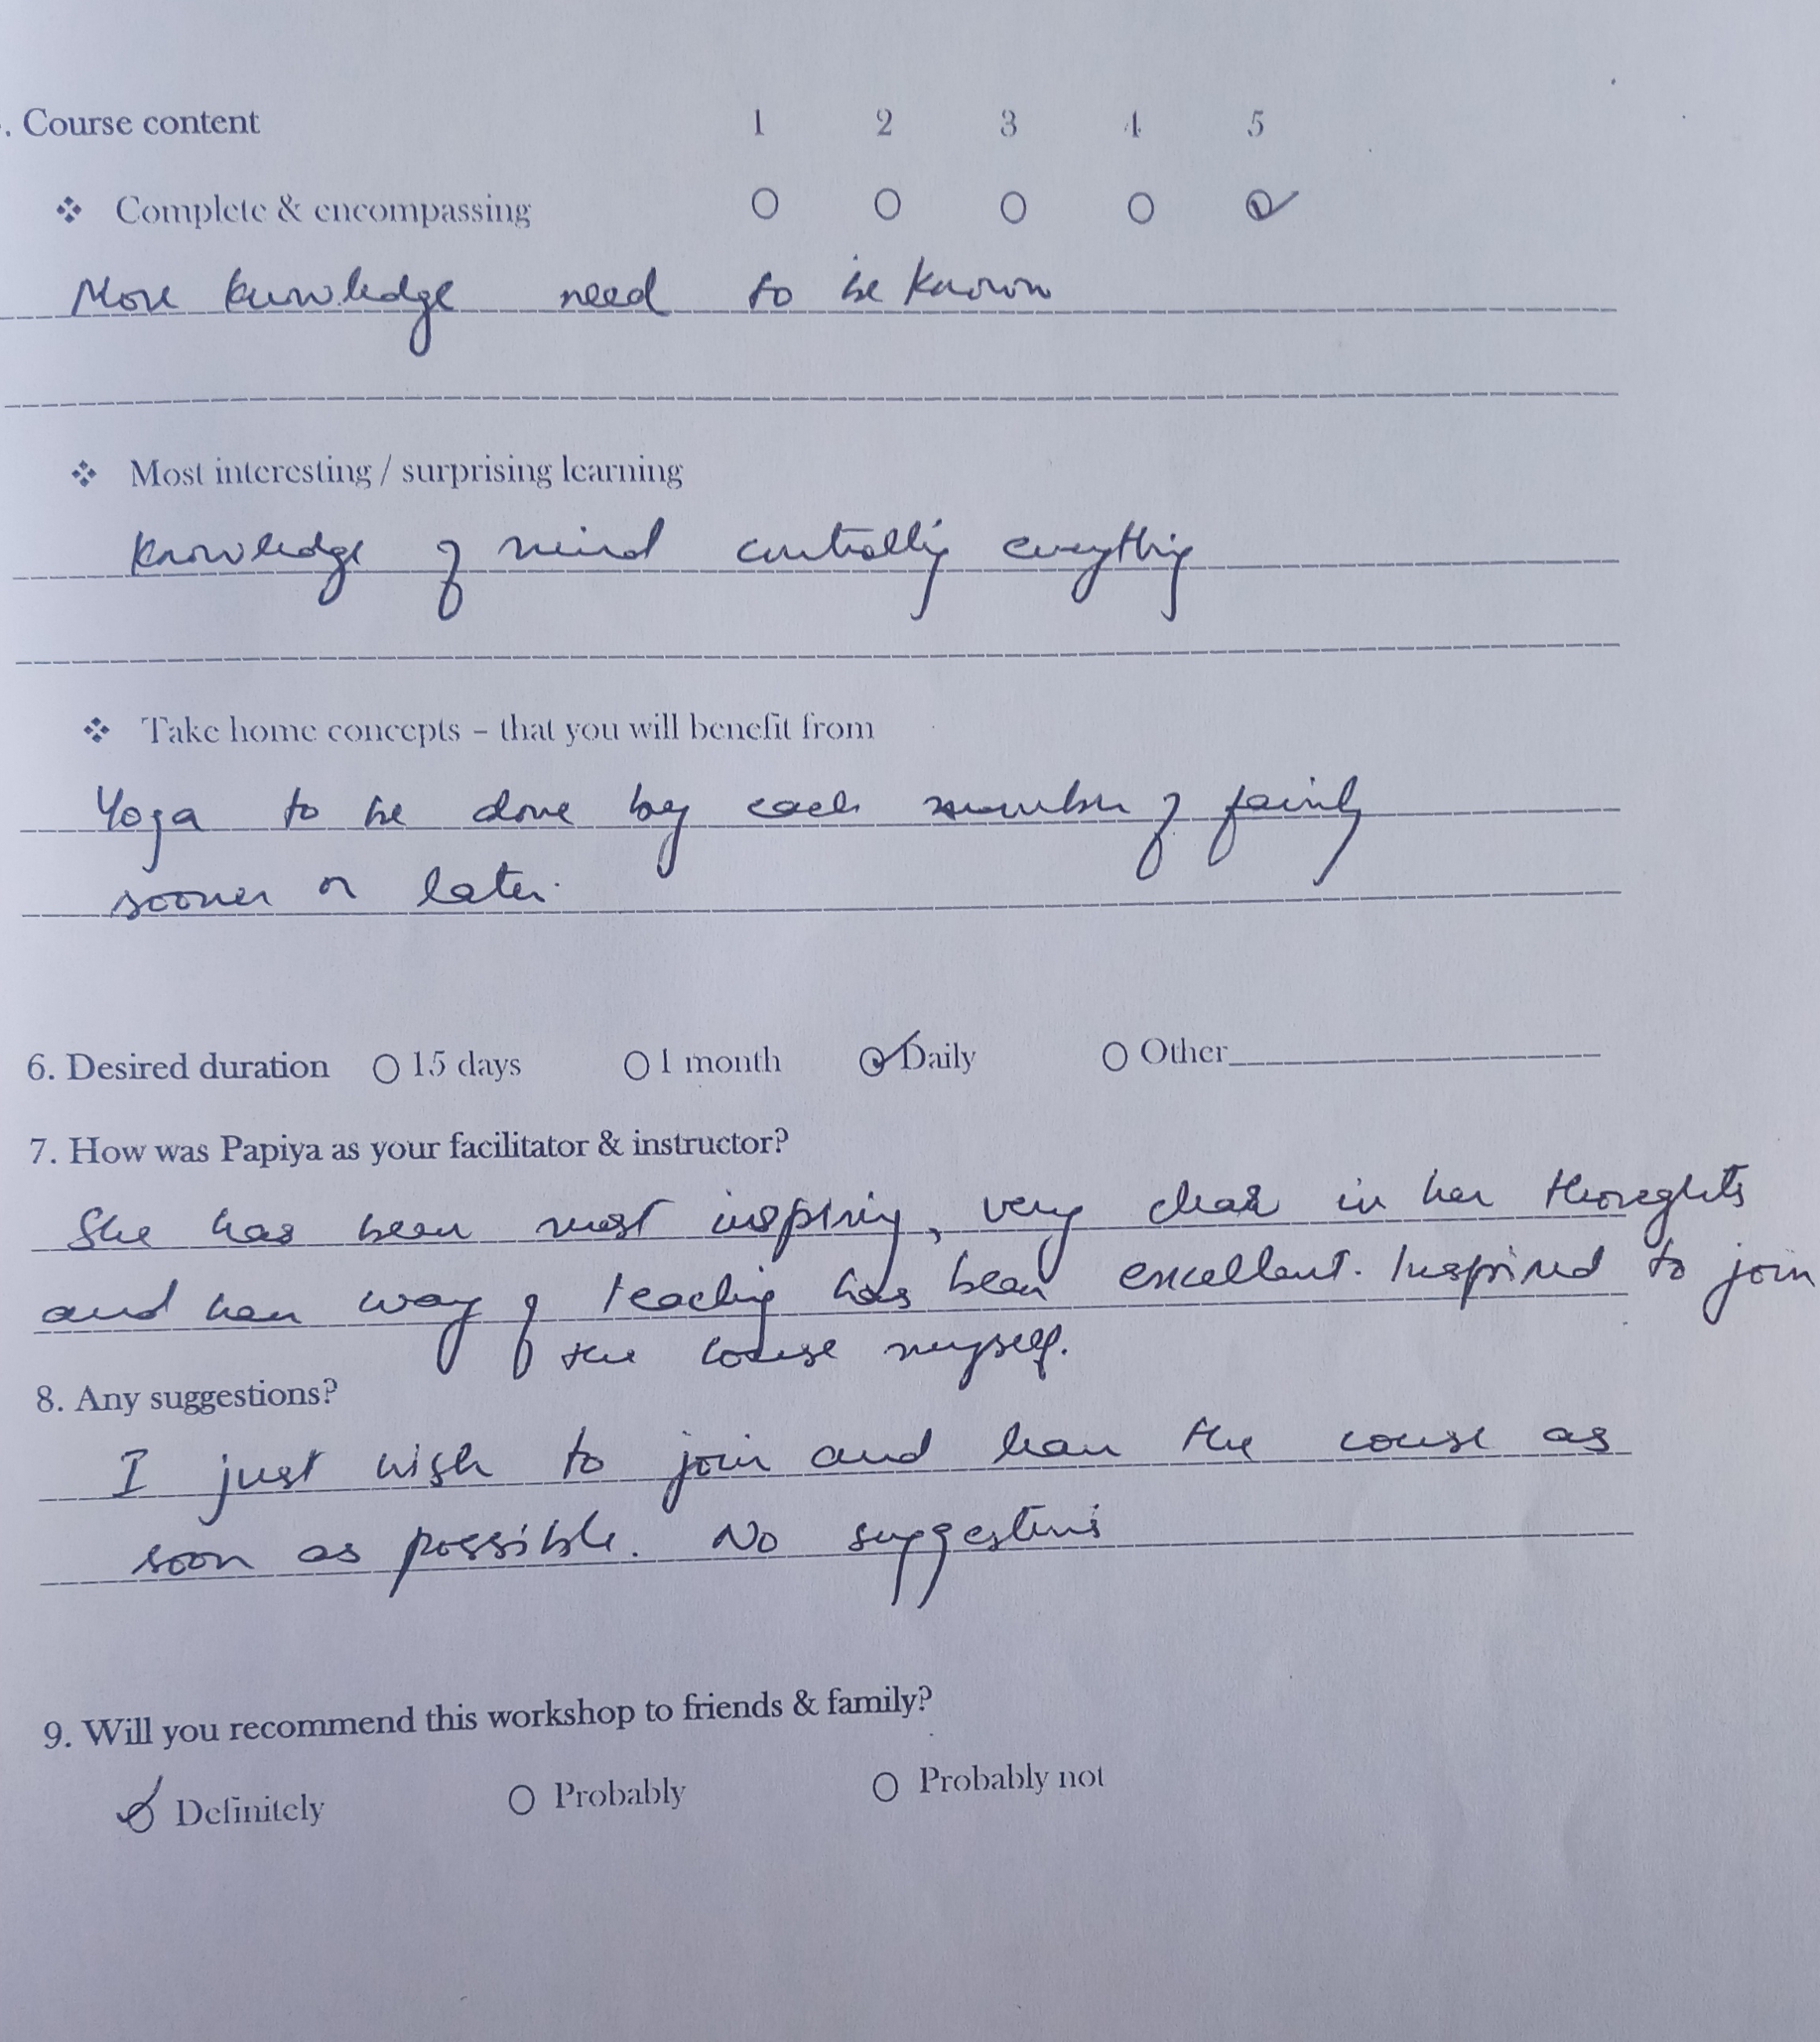 . Course content 1 2 3 4 5
❖ Complete & encompassing
More knowledge need to be known
❖ Most interesting / surprising learning
Knowledge of mind controlling everything
❖ Take home concepts – that you will benefit from
Yoga to be done by each member of family
sooner or later.
6. Desired duration 15 days 1 month Daily Other
7. How was Papiya as your facilitator & instructor?
She has been most inspiring, very clear in her thoughts
and her way of teaching has been excellent. Inspired to join
the course myself.
8. Any suggestions?
I just wish to join and learn the course as
soon as possible. No suggestions
9. Will you recommend this workshop to friends & family?
Definitely Probably Probably not